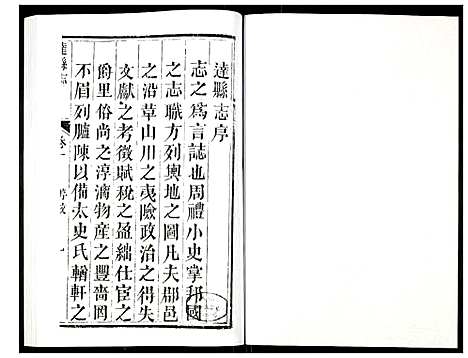 達縣志序
志之爲言誌也周禮小史掌邦國
之志職方列輿地之圖凡夫郡邑
之沿革山川之夷險政治之得失
文獻之考徵賦稅之盈絀仕宦之
爵里俗尚之淳漓物產之豐嗇罔
不眉列臚陳以備太史氏輶軒之
達縣志